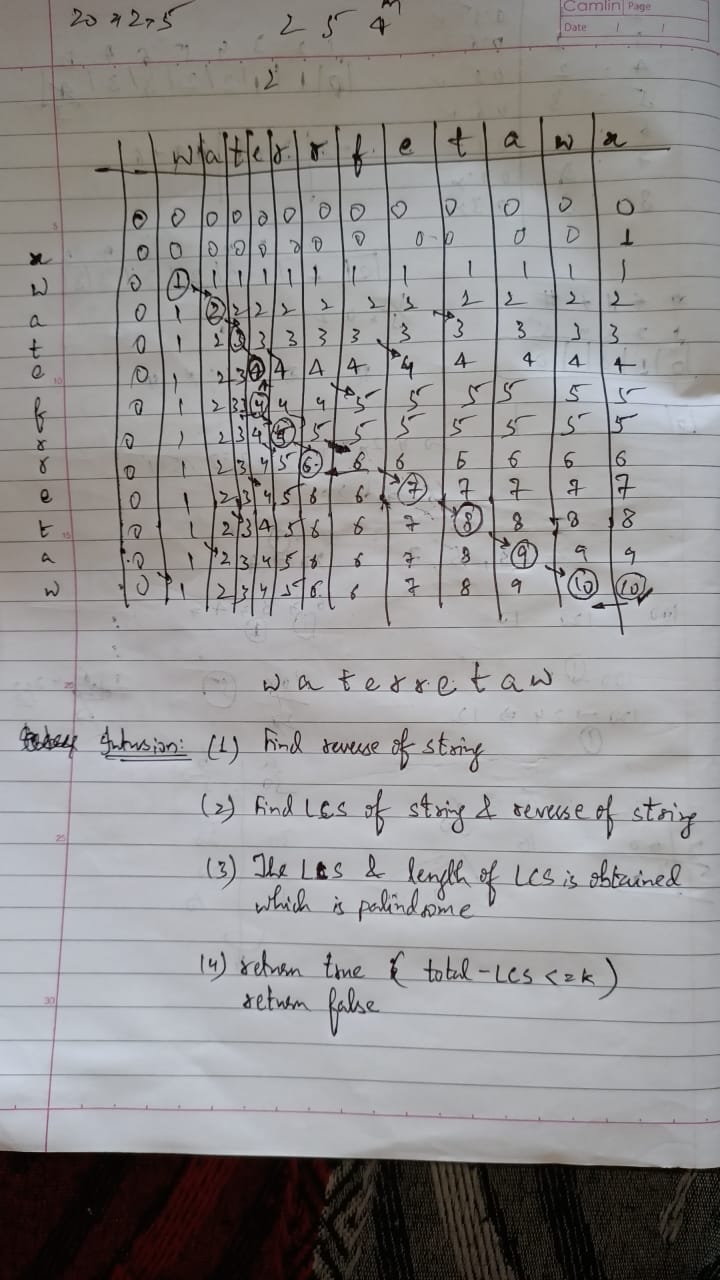 Camlin Page
Date / /
2 5 4
2
w a t e r r f e t a w x
0 0 0 0 0 0 0 0 0 0 0 0 0
x 0 0 0 0 0 0 0 0 0 0 0 0 1
w 0 1 1 1 1 1 1 1 1 1 1 1 1
a 0 1 2 2 2 2 2 2 2 2 2 2 2
t 0 1 2 3 3 3 3 3 3 3 3 3 3
e 0 1 2 3 4 4 4 4 4 4 4 4 4
f 0 1 2 3 4 4 4 5 5 5 5 5 5
r 0 1 2 3 4 5 5 5 5 5 5 5 5
r 0 1 2 3 4 5 6 6 6 6 6 6 6
e 0 1 2 3 4 5 6 6 7 7 7 7 7
t 0 1 2 3 4 5 6 6 7 8 8 8 8
a 0 1 2 3 4 5 6 6 7 8 9 9 9
w 0 1 2 3 4 5 6 6 7 8 9 10 10
w a t e r r e t a w
Intusion: (1) Find reverse of string
(2) Find LCS of string & reverse of string
(3) The LCS & length of LCS is obtained
which is palindrome
(4) return true ( total - LCS <= k)
return false